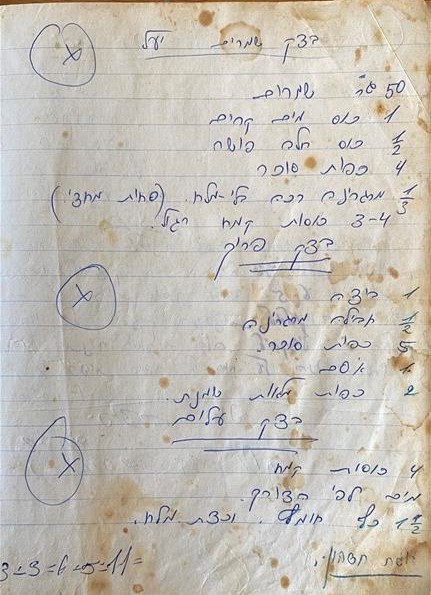 בצק שמרים יעל
50 גר' שמרים
1 כוס מים קרים
1/2 כוס חלב פושר
4 כפות סוכר
1/3 מרגרינה רכה בלי-מלח. (פחות מחצי.)
3-4 כוסות קמח רגיל.
בצק פריך
1 ביצה
1/2 חבילה מרגרינה
5 כפות סוכר.
1
2 כפות מלאות שמנת.
בצק עלים
4 כוסות קמח
מים לפי הצורך.
1 1/2 כף חומץ. וקצת מלח.